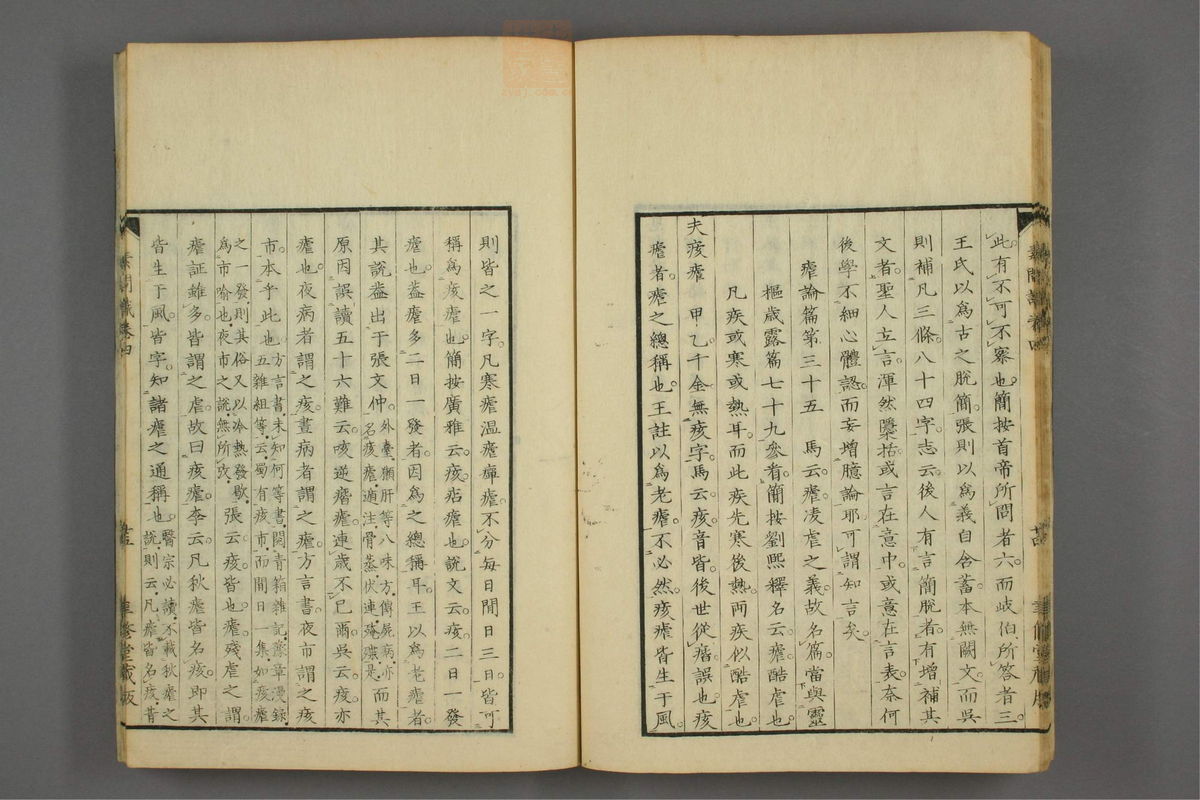 此有不可不察也簡按首帝所問者六而岐伯所答者三
王氏以為古之脫簡張則以為義自含蓄本無闕文而吳
則補凡三條八十四字志云後人有言簡脫者有增補其
文者聖人立言渾然隱括或言在意中或意在言表奈何
後學不細心體認而妄增臆論耶可謂知言矣
瘧論篇第三十五 馬云瘧凌虐之義故名篇當與靈
樞歲露篇七十九參看簡按劉熙釋名云瘧酷虐也
凡疾或寒或熱耳而此疾先寒後熱兩疾似酷虐也
夫痎瘧 甲乙千金無痎字馬云痎音皆後世從㾬誤也痎
瘧者瘧之總稱也王註以為老瘧不必然痎瘧皆生于風
則皆之一字凡寒瘧温瘧癉瘧不分每日間日三日皆可
稱為痎瘧也簡按廣雅云痎痁瘧也說文云痎二日一發
瘧也蓋瘧多二日一發者因為之總稱耳王以為老瘧者
其說蓋出于張文仲外臺獺肝等八味方傳屍病亦名痎瘧遁注骨蒸伏連殗殜是而其
原因誤讀五十六難云咳逆㾬瘧連歲不已爾吳云痎亦
瘧也夜病者謂之痎晝病者謂之瘧方言書夜市謂之痎
市本乎此也方言書未知何等書閱青箱雜記豫章漫錄五雜組等云蜀有痎市而間日一集如痎瘧
之一發則其俗又以冷熱發歇為市喻也夜市之說無所攷張云痎皆也瘧殘虐之謂
瘧証雖多皆謂之虐故曰痎瘧李云凡秋瘧皆名痎即其
皆生于風皆字知諸瘧之通稱也醫宗必讀不載秋瘧之說則云凡瘧皆名痎昔
素問識卷四